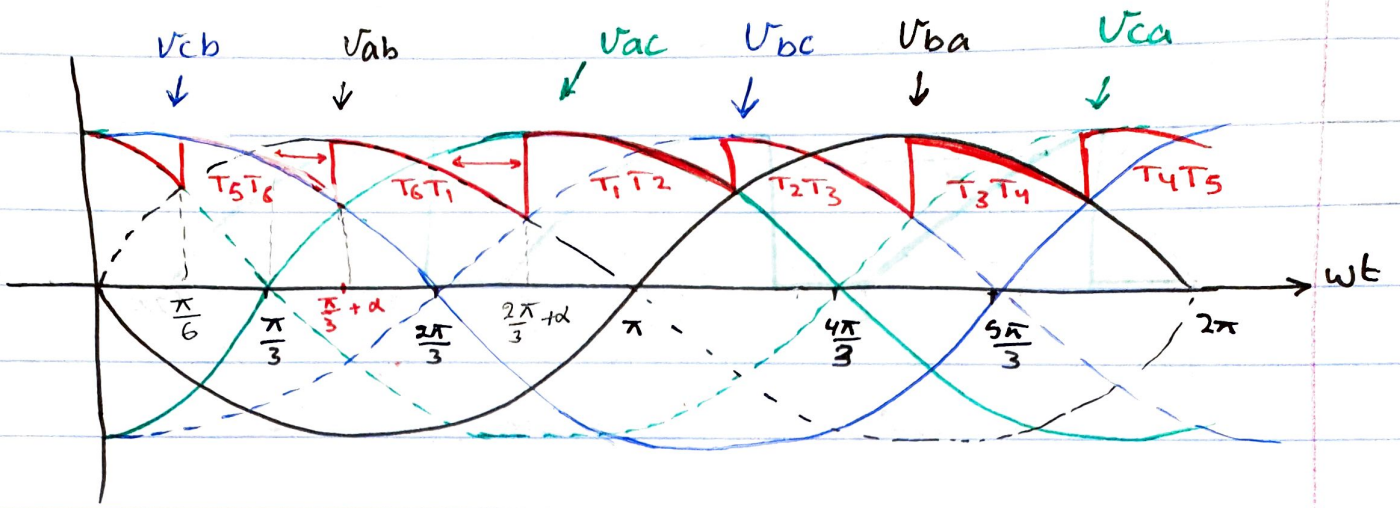 Vcb Vab Vac Vbc Vba Vca
T5T6 T6T1 T1T2 T2T3 T3T4 T4T5
ωt
π/6 π/3 π/3 + α 2π/3 2π/3 + α π 4π/3 5π/3 2π